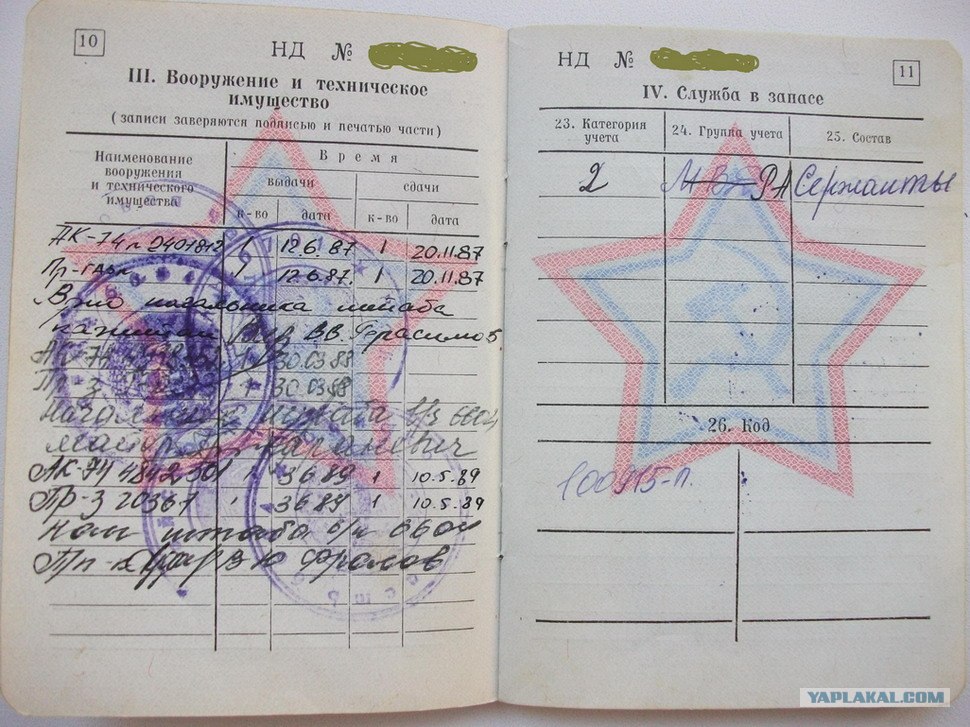 10
НД №
III. Вооружение и техническое
имущество
(записи заверяются подписью и печатью части)
Наименование
вооружения
и технического
имущества
Время
выдачи
сдачи
к-во
дата
к-во
дата
АК-74 1 12.6.87 1 20.11.87
1 12.6.87. 1 20.11.87
Врио начальника штаба
капитан В.В. Герасимов
АК-74 1 30.03.88
1 30.03.88
Начальник штаба в/ч
майор
АК-74 1 3.6.89 1 10.5.89
Пр-3 20361 3.6.89 1 10.5.89
Нач штаба в/ч
Фролов
11
НД №
IV. Служба в запасе
23. Категория
учета
24. Группа учета
25. Состав
2
РА
Сержанты
26. Код
100915-п.
YAPLAKAL.COM